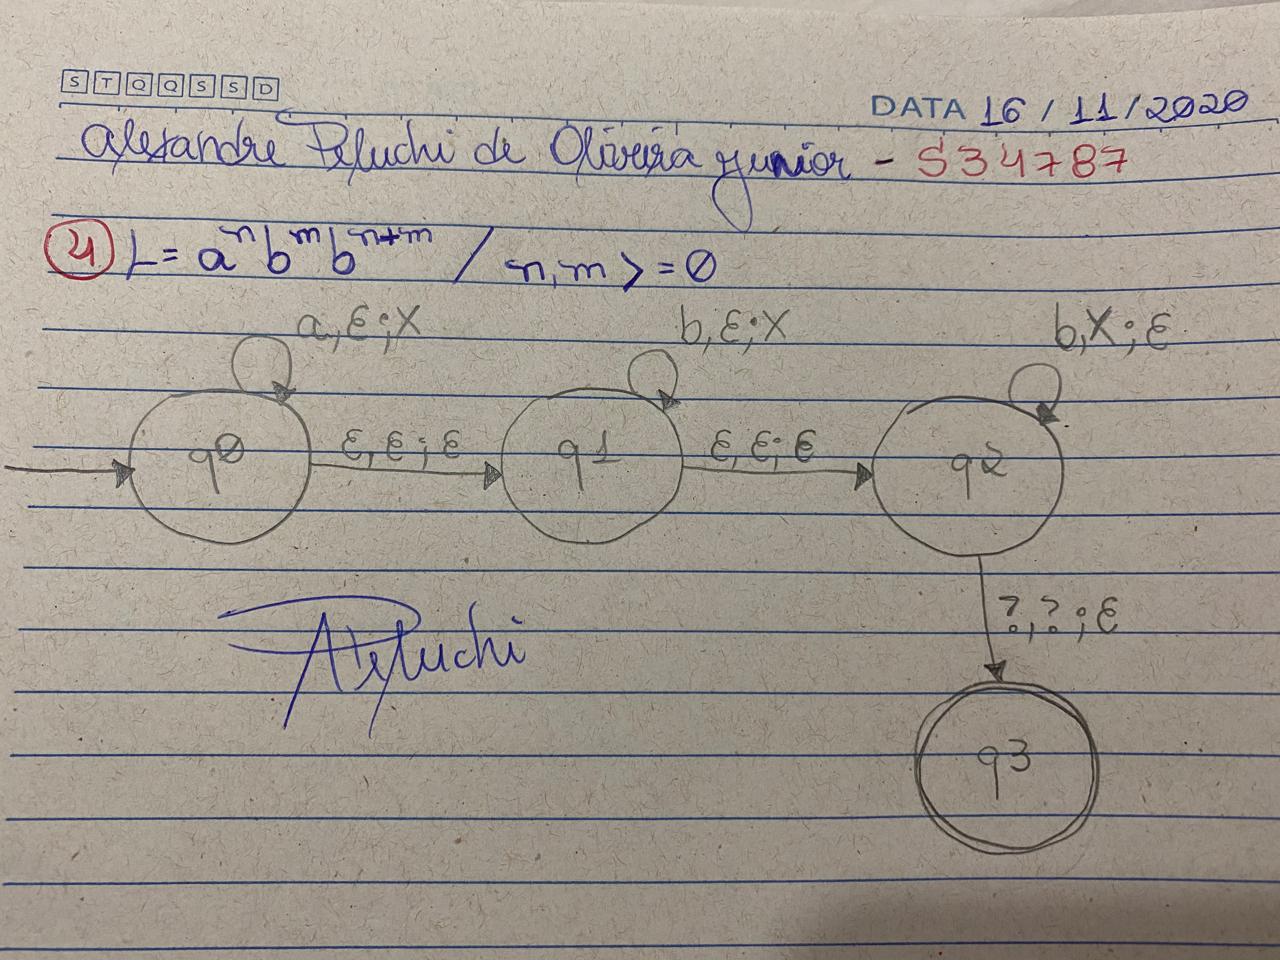 S T Q Q S S D
DATA 16/11/2020
Alexandre Peluchi de Oliveira Junior - 534787
4 L= aⁿ bᵐ bⁿ⁺ᵐ / n,m >= 0
a,ε;X b,ε;X b,X;ε
q0 ε,ε;ε q1 ε,ε;ε q2
?,?;ε
APeluchi
q3